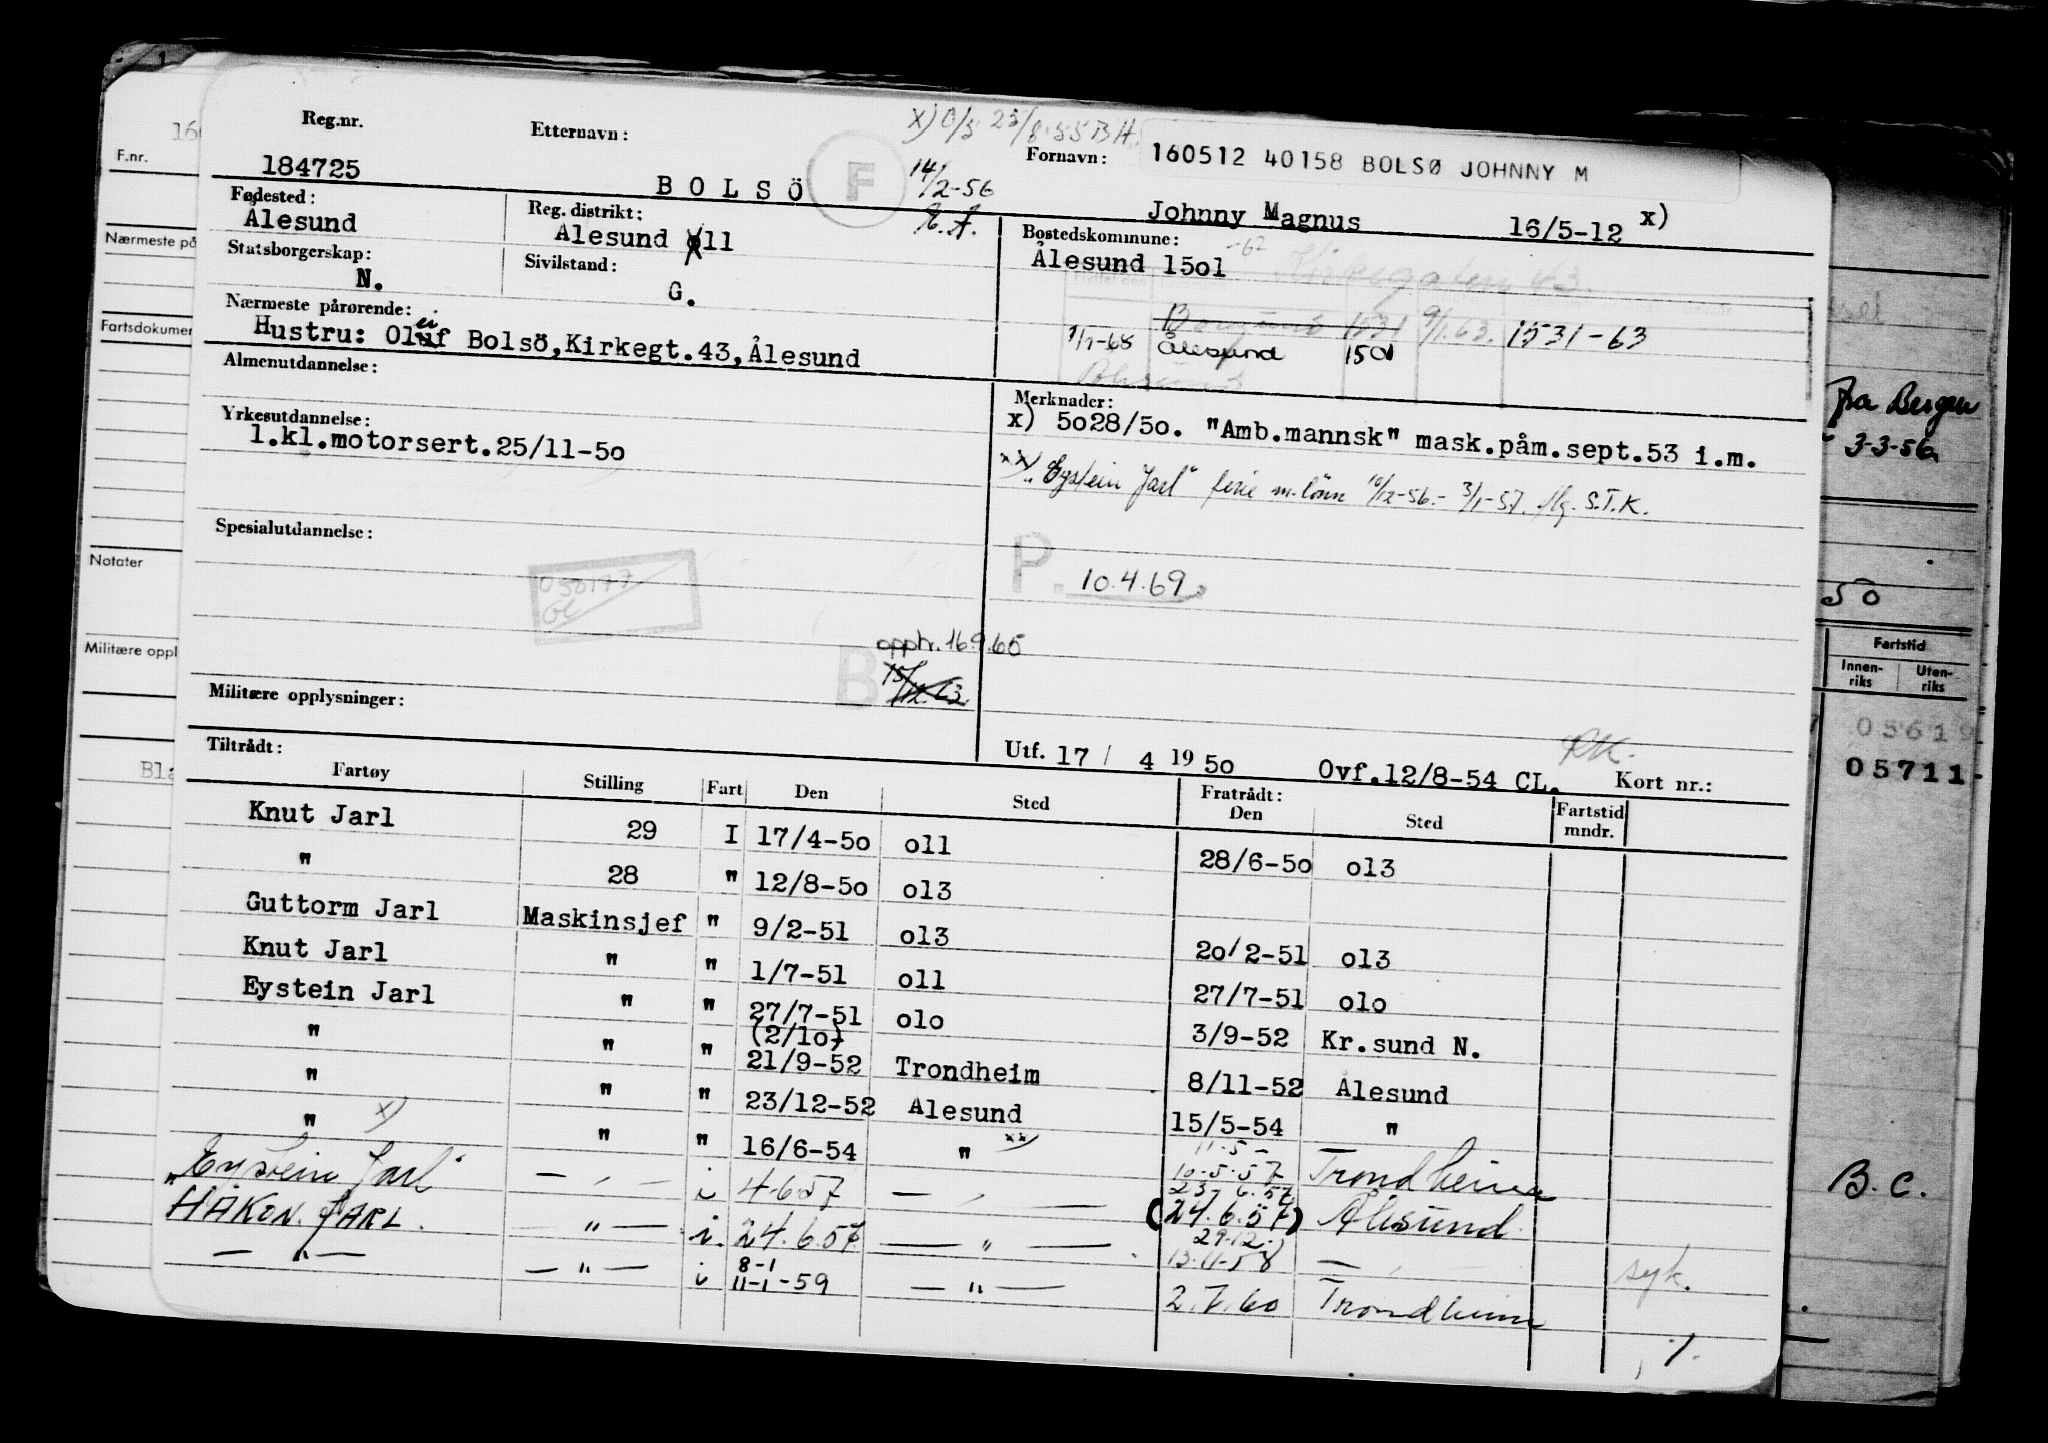 x) 0/S 23/8-55 B H.
Reg.nr. Etternavn: Fornavn: 160512 40158 BOLSØ JOHNNY M
184725 BOLSÖ F 14/2-56 Johnny Magnus 16/5-12 x)
Fødested: Reg. distrikt: Bostedskommune:
Ålesund Ålesund 011 Ålesund 15o1
-62 Kirkegaten 43.
Statsborgerskap: Sivilstand:
N. G.
Nærmeste pårørende:
Hustru: Oluf Bolsö,Kirkegt.43,Ålesund
Borgund 1531 9/1.63. 1531-63
1/1-68 Ålesund 1501
Almenutdannelse: Merknader:
Yrkesutdannelse: x) 5o28/5o. "Amb.mannsk" mask.påm.sept.53 i.m.
1.kl.motorsert.25/11-5o
xx) "Eystein Jarl" ferie m. lönn 10/12-56.- 3/1-57. S.T.K.
Spesialutdannelse:
P. 10.4.69
050177
opph. 16.9.65
B
Militære opplysninger:
Tiltrådt: Utf. 17 / 4 19 5o Ovf.12/8-54 CL. Kort nr.:
Fartøy Stilling Fart Den Sted Fratrådt: Den Sted Fartstid mndr.
Knut Jarl 29 I 17/4-5o o11 28/6-5o o13
" 28 " 12/8-5o o13
Guttorm Jarl Maskinsjef " 9/2-51 o13 2o/2-51 o13
Knut Jarl " " 1/7-51 o11 27/7-51 o1o
Eystein Jarl " " 27/7-51 o1o 3/9-52 Kr.sund N.
(2/10)
" " " 21/9-52 Trondheim 8/11-52 Ålesund
" " " 23/12-52 Ålesund 15/5-54 "
" x) " " 16/6-54 " xx) 11-5- 10.5.57 Trondheim
"Eystein Jarl" — " — i 4.6.57 — " — 23.6.57 (24.6.57) Ålesund
HÅKON JARL. — " — i. 24.6.57 — " — 29.12. 13.11.58 — " syk.
— " — — " — i 8-1 11-1-59 — " — 2.7.60 Trondheim
F.nr.
Nærmeste på
Fartsdokumen
Notater
Militære oppl
Bla
fra Bergen
3-3-56
50
Fartstid
Innen-riks Uten-riks
05619
05711-
B.C.